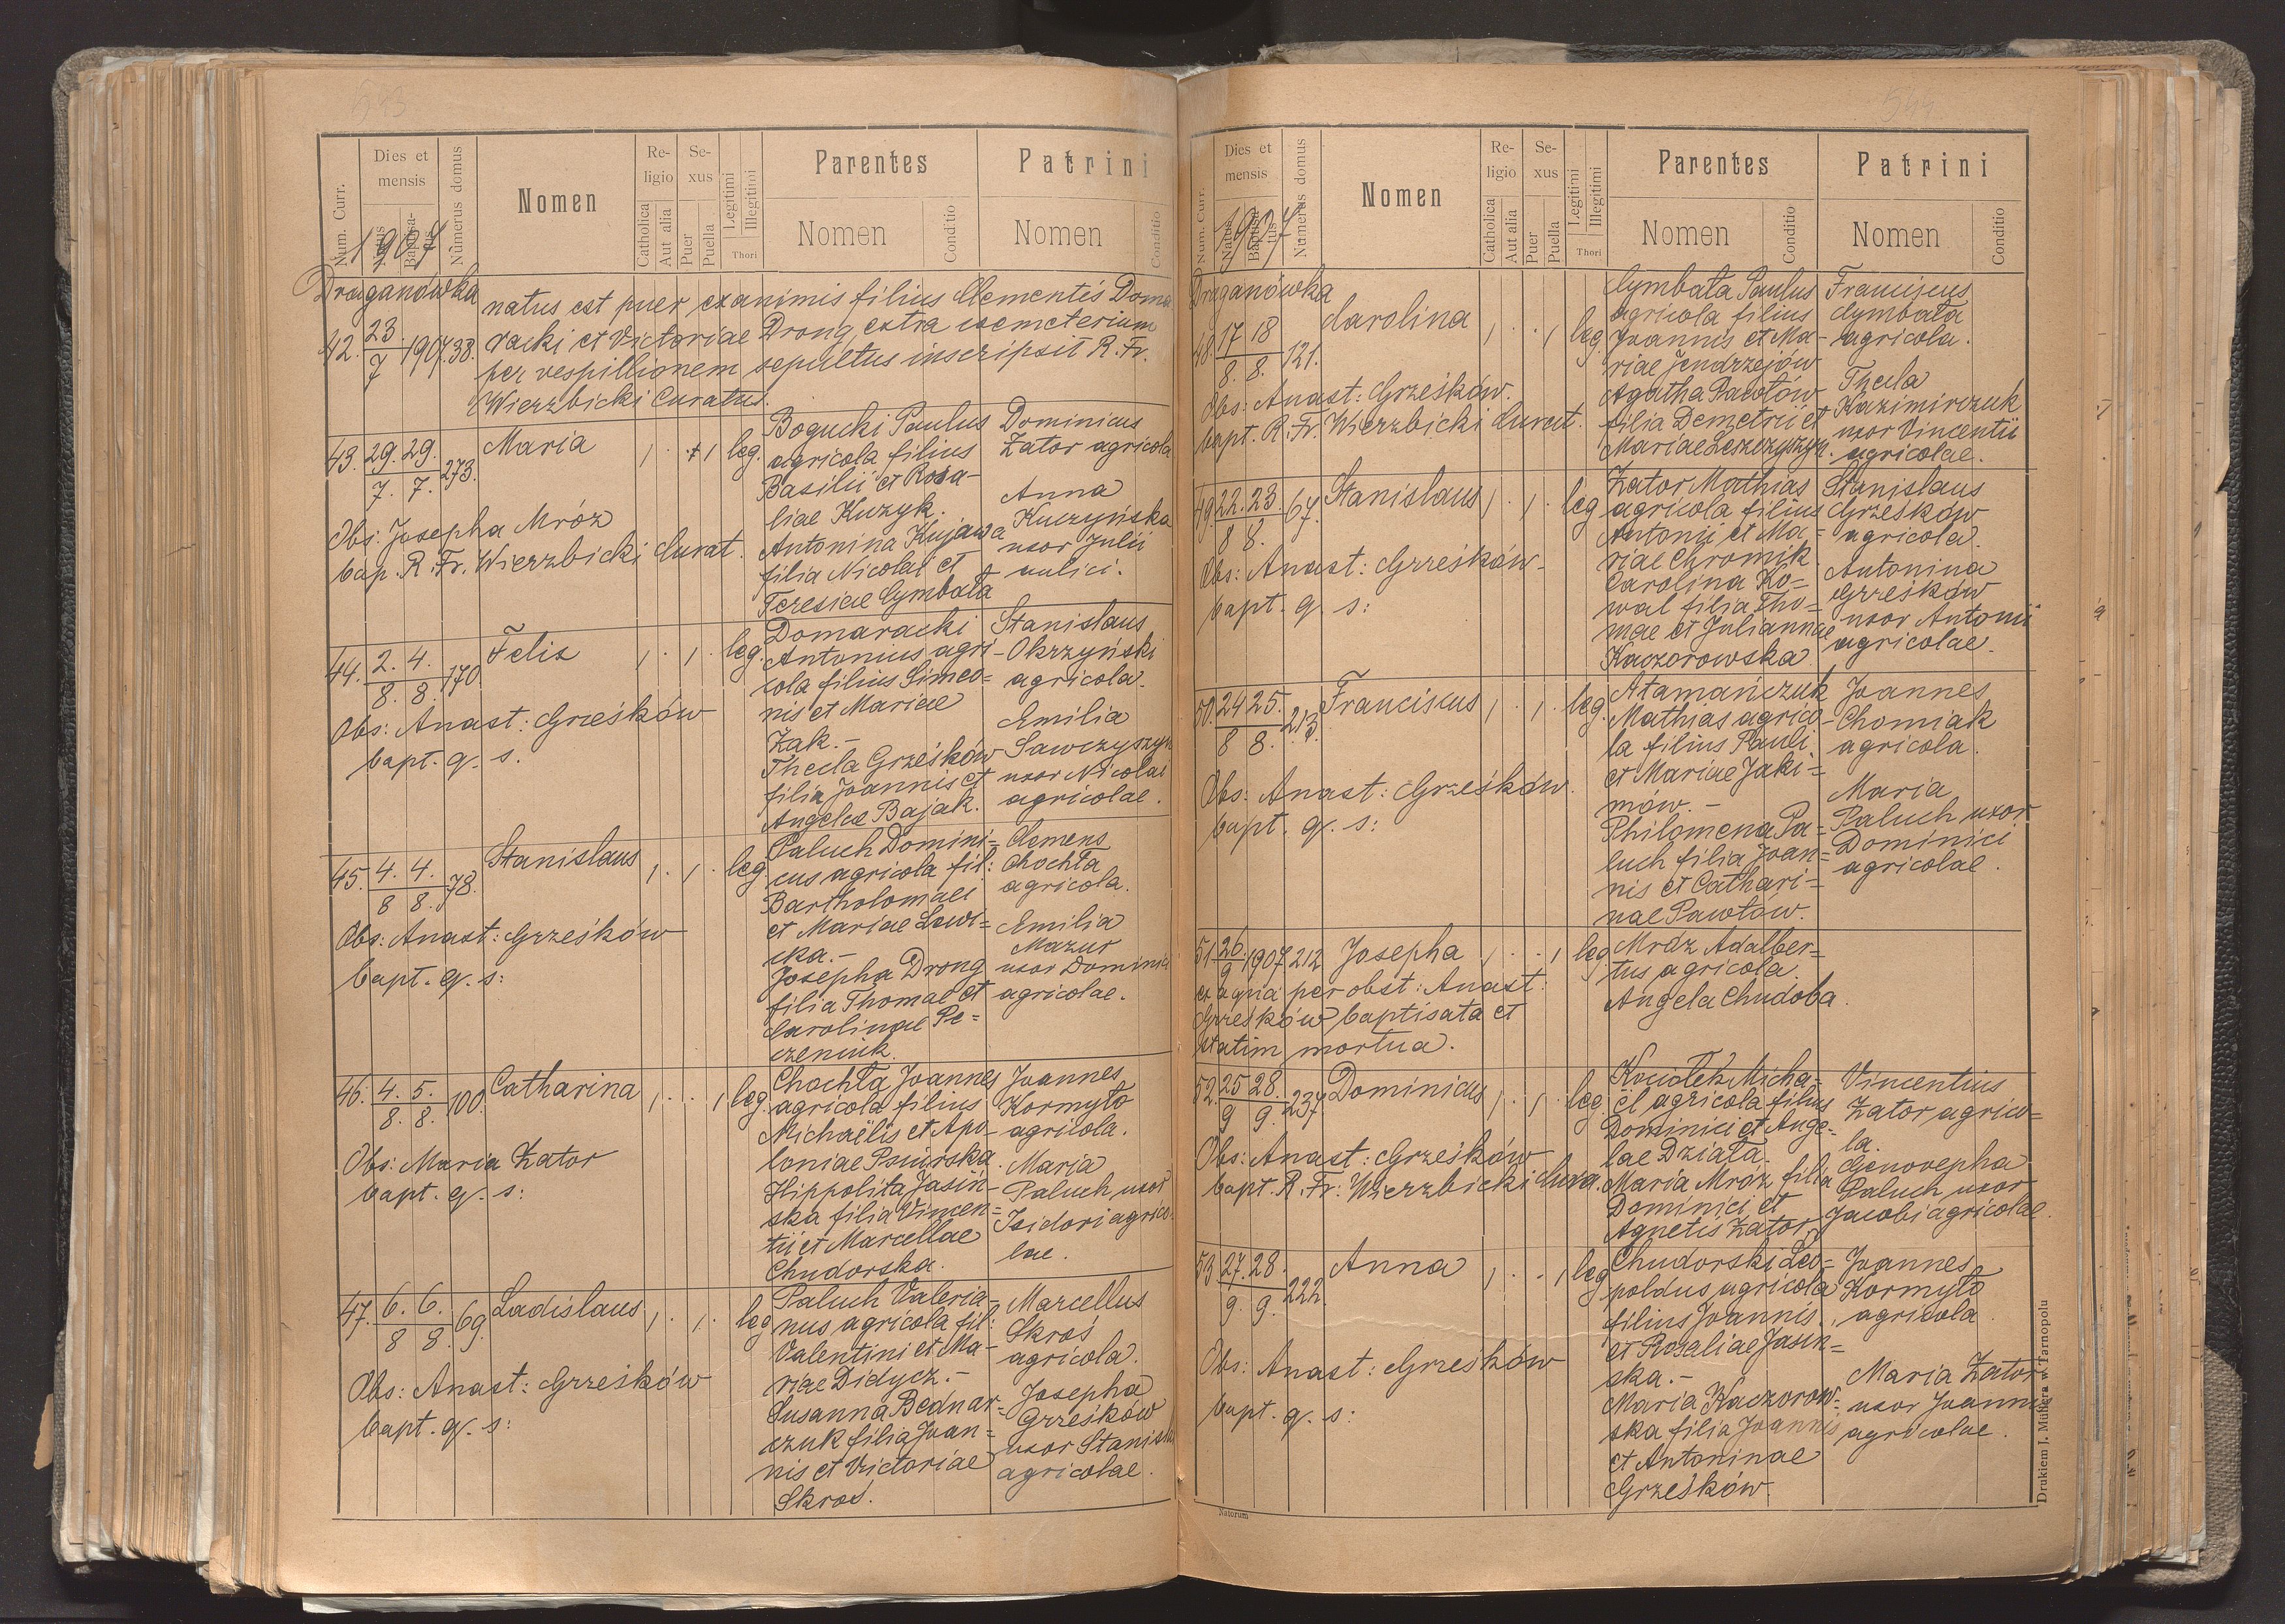 543
Num. Curr.
Dies et mensis
Natus
Baptisa-
tus
Numerus domus
Nomen
Re-
ligio
Catholica
Aut alia
Se-
xus
Puer
Puella
Legitimi
Illegitimi
Thori
Parentes
Nomen
Conditio
Patrini
Nomen
Conditio
1907
Draganówka
42. 23/7 1907. 38.
natus est puer exanimis filius Clementis Doma
racki et Victoriae Drong, extra coemeterium
per vespillionem sepultus inscripsit R. Fr.
Wierzbicki Curatus.
43. 29. 29. / 7. 7. 273. Maria 1 . +1 leg.
Obs: Josepha Mróz
bap. R. Fr. Wierzbicki Curat.
Bogucki Paulus
agricola filius
Basilii et Rosa-
liae Kuzyk.
Antonina Kujawa
filia Nicolai et
Teresiae Cymbała
Dominicus
Zator agricola
Anna
Kuczyńska
uxor Julii
aulici.
44. 2. 4. / 8. 8. 170 Felix 1 . 1 . leg.
Obs: Anast: Grześków
bapt. q. s.
Domaracki
Antonius agri-
cola filius Simeo=
nis et Mariae
Żak.-
Thecla Grześków
filia Joannis et
Angelae Bajak.
Stanislaus
Okrzyński
agricola.
Emilia
Sawczyszyn
uxor Nicolai
agricolae.
45. 4. 4. / 8 8. 78. Stanislaus 1 . 1 . leg
Obs: Anast: Grześków
bapt. q. s:
Paluch Domini=
cus agricola fil:
Bartholomaei
et Mariae Lewi=
cka.-
Josepha Drong
filia Thomae et
Carolinae Pe=
czeniuk.
Clemens
Chochła
agricola.
Emilia
Mazur
uxor Dominici
agricolae.
46. 4. 5. / 8. 8. 100. Catharina 1 . . 1 leg.
Obs: Maria Zator
bapt. q. s:
Chochła Joannes
agricola filius
Michaëlis et Apo-
loniae Psiurska.
Hippolita Jasiń-
ska filia Vincen=
tii et Marcellae
Chudorska.
Joannes
Kormyło
agricola.
Maria
Paluch uxor
Isidori agrico-
lae.
47. 6. 6. / 8 8. 69. Ladislaus 1 . 1 . leg
Obs: Anast: Grześków
bapt. q. s:
Paluch Valeria-
nus agricola fil:
Valentini et Ma-
riae Didycz.-
Susanna Bednar=
czuk filia Joan=
nis et Victoriae
Skroś.
Marcellus
Skroś
agricola.
Josepha
Grześków
uxor Stanisla
agricolae.
544
Num. Curr.
Dies et
mensis
Natus
Baptisa-
tus
Numerus domus
Nomen
Re-
ligio
Catholica
Aut alia
Se-
xus
Puer
Puella
Legitimi
Illegitimi
Thori
Parentes
Nomen
Conditio
Patrini
Nomen
Conditio
1907
Draganówka
48. 17 18 / 8. 8. 121. Carolina 1 . . 1 leg.
Obs: Anast: Grześków.
bapt. R. Fr. Wierzbicki Curat.
Cymbała Paulus
agricola filius
Joannis et Ma-
riae Jendrzejów
Agatha Pawłów
filia Demetrii et
Mariae Leszczyszyn.
Franciscus
Cymbała
agricola.
Thecla
Kazimirczuk
uxor Vincentii
agricolae.
49. 22. 23. / 8 8. 67. Stanislaus 1 . 1 . leg
Obs: Anast: Grześków-
bapt. q. s:
Zator Mathias
agricola filius
Antonii et Ma-
riae Chromik.
Carolina Ko-
wal filia Tho-
mae et Juliannae
Kaczorowska.
Stanislaus
Grześków
agricola.
Antonina
Grześków
uxor Antonii
agricolae.
50. 24 25. / 8 8. 213. Franciscus 1 . 1 . leg.
Obs: Anast: Grześków.
bapt. q. s:
Atamańczuk
Mathias agrico-
la filius Pauli
et Mariae Jaki=
mów.-
Philomena Pa=
luch filia Joan=
nis et Cathari=
nae Pawłów.
Joannes
Chomiak
agricola.
Maria
Paluch uxor
Dominici
agricolae.
51. 26/9 1907 212 Josepha 1 . . 1 leg
ex aqua per obst: Anast:
Grześków baptisata et
statim mortua.
Mróz Adalber=
tus agricola.
Angela Chudoba.
52. 25 28. / 9 9. 237. Dominicus 1 . 1 . leg.
Obs: Anast: Grześków
bapt. R. Fr. Wierzbicki Cura.
Kociołek Micha=
ël agricola filius
Dominici et Ange=
lae Działa.
Maria Mróz filia
Dominici et
Agnetis Zator
Vincentius
Zator agrico=
la.
Genovepha
Paluch uxor
Jacobi agricolae.
53 27. 28. / 9. 9. 222. Anna 1 . . 1 leg
Obs: Anast: Grześków
bapt. q. s:
Chudorski Leo=
poldus agricola
filius Joannis
et Rosaliae Jasiń=
ska.-
Maria Kaczorow=
ska filia Joannis
et Antoninae
Grześków.
Joannes
Kormyło
agricola.
Maria Zator
uxor Joannis
agricolae.
Natorum
Drukiem J. Müllera w Tarnopolu